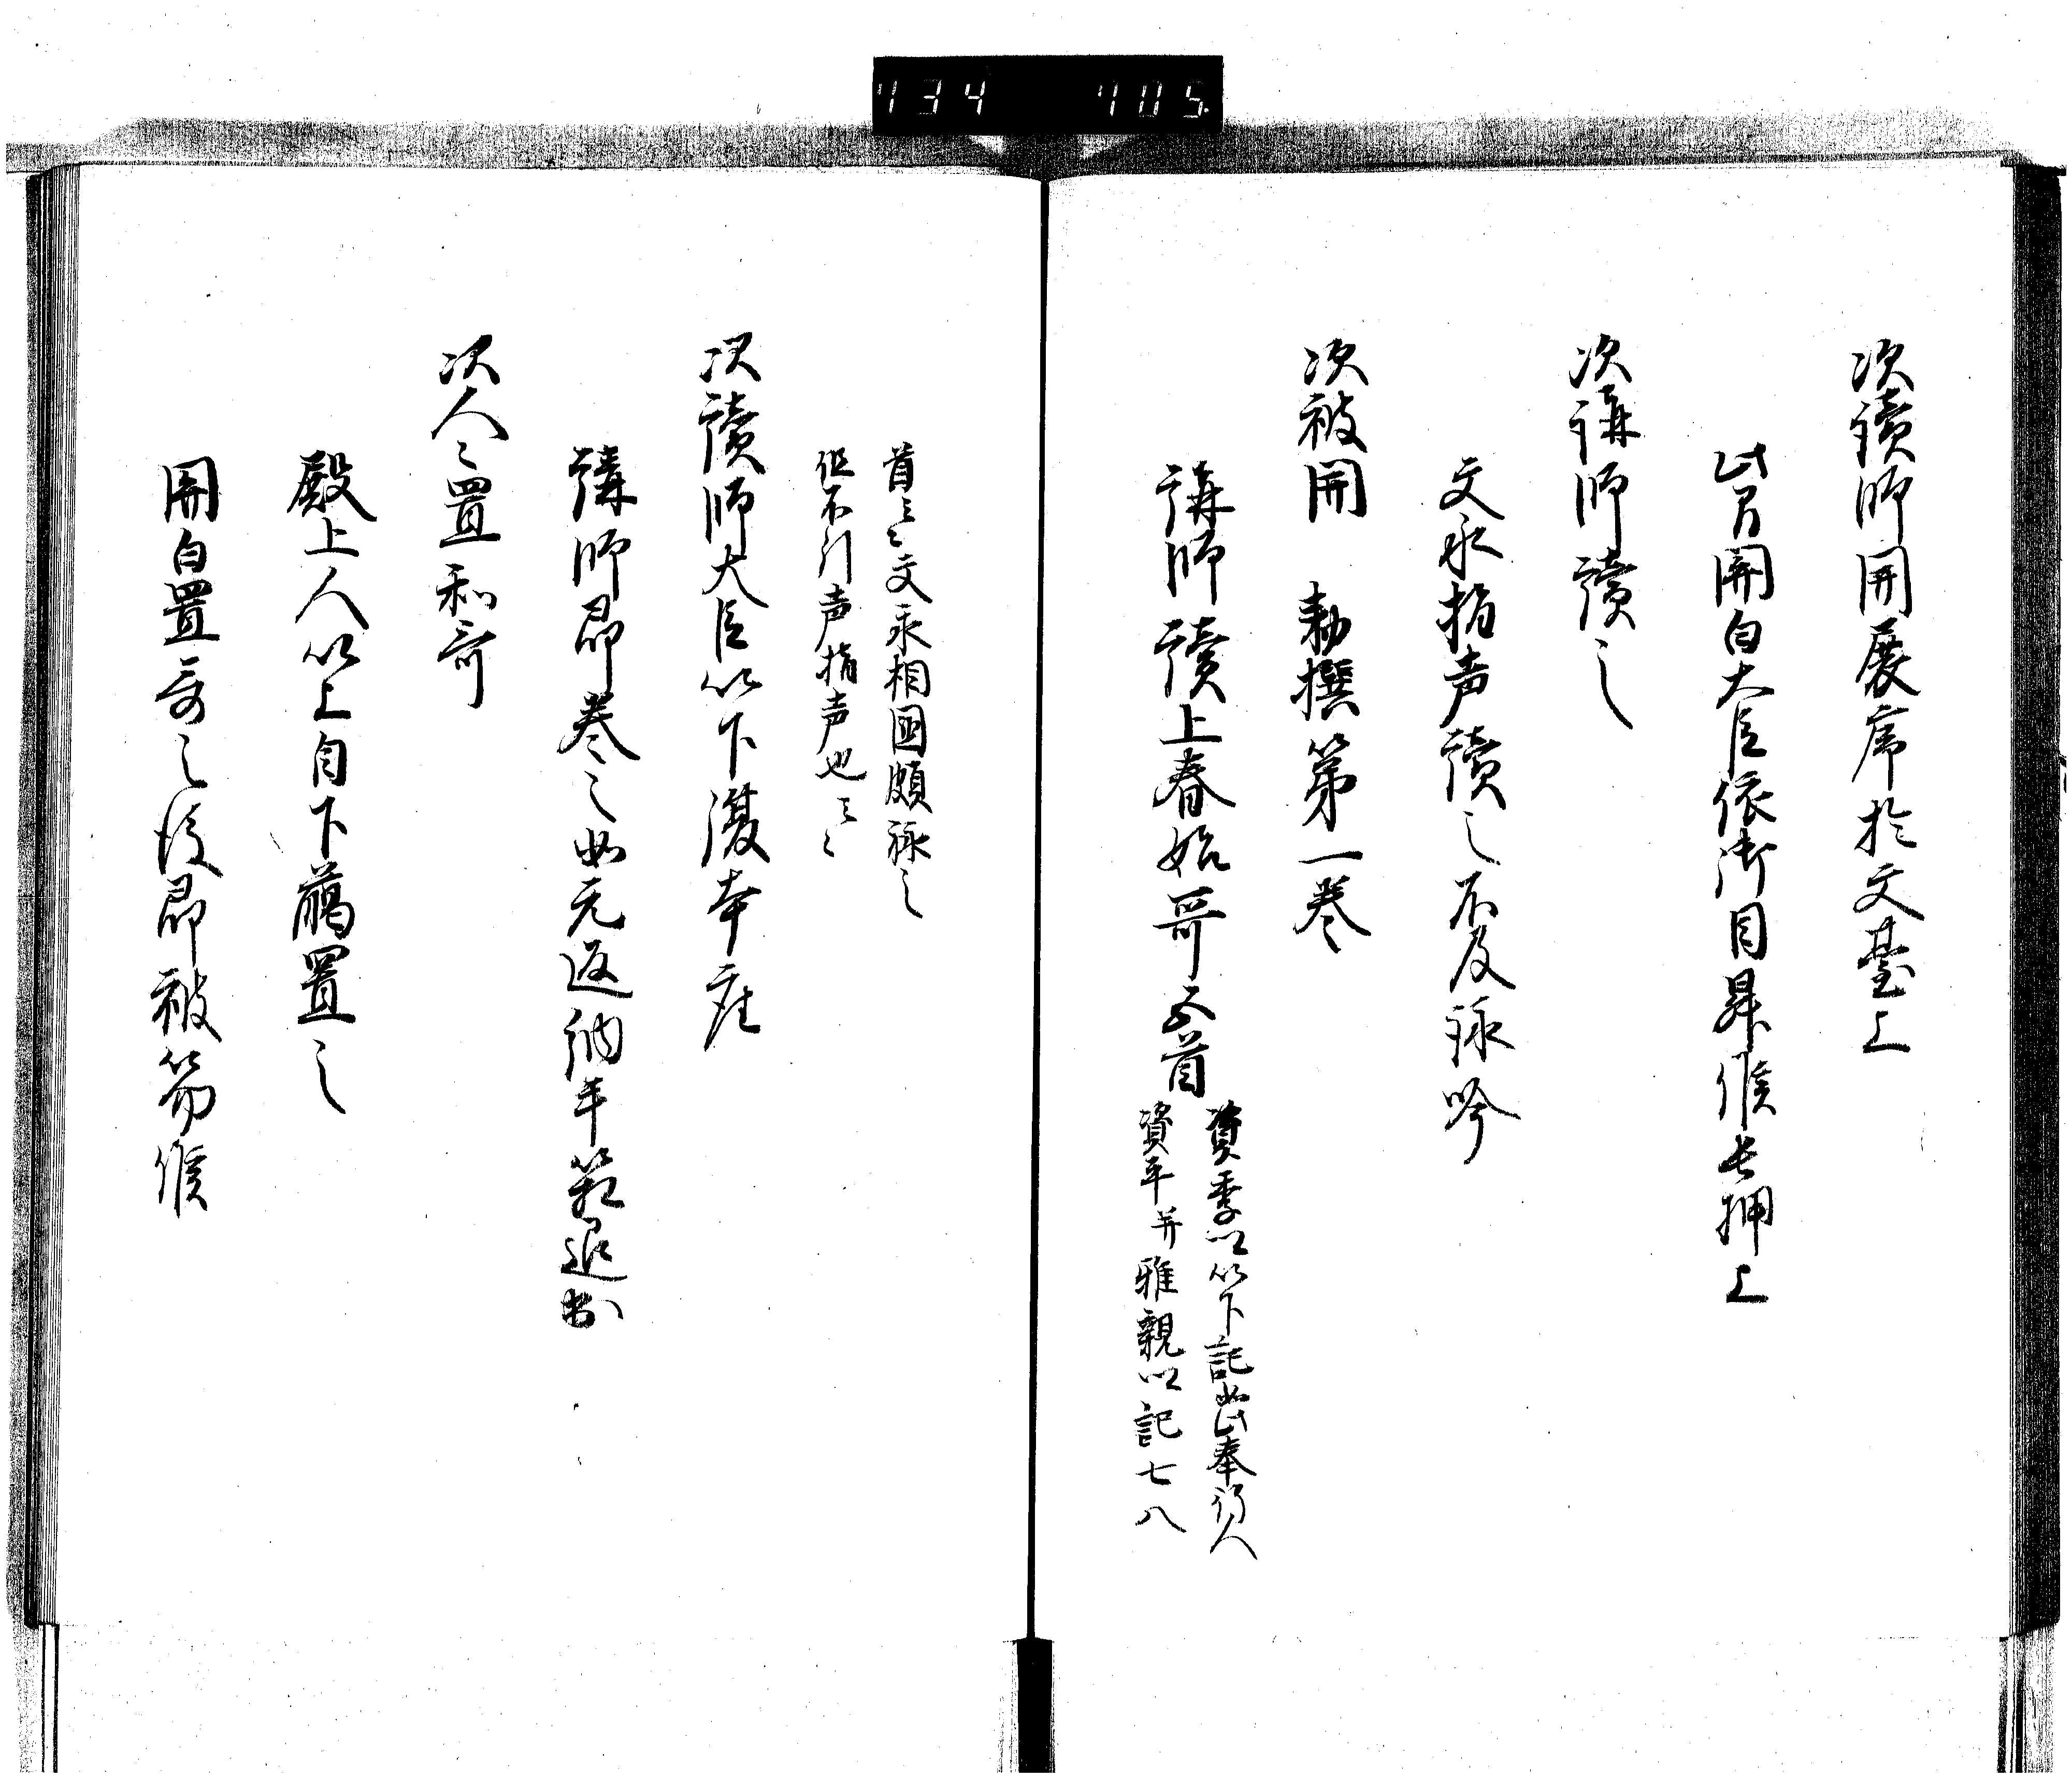 434 405
次讀師開展序於文臺上
此間関白大臣依御目昇候長押上
次講師讀之
文永指声讀之不及詠吟
次被開 勅撰第一巻
講師讀上春始哥五首
資季卿以下記如此奉行人
資平并雅親卿記七八
首云々文永相國頗詠之
但不引声指声也云々
次讀師大臣以下復本座
講師即巻之如元返納筥退出
次人々置和哥
殿上人以上自下﨟置之
関白置哥之後即被候